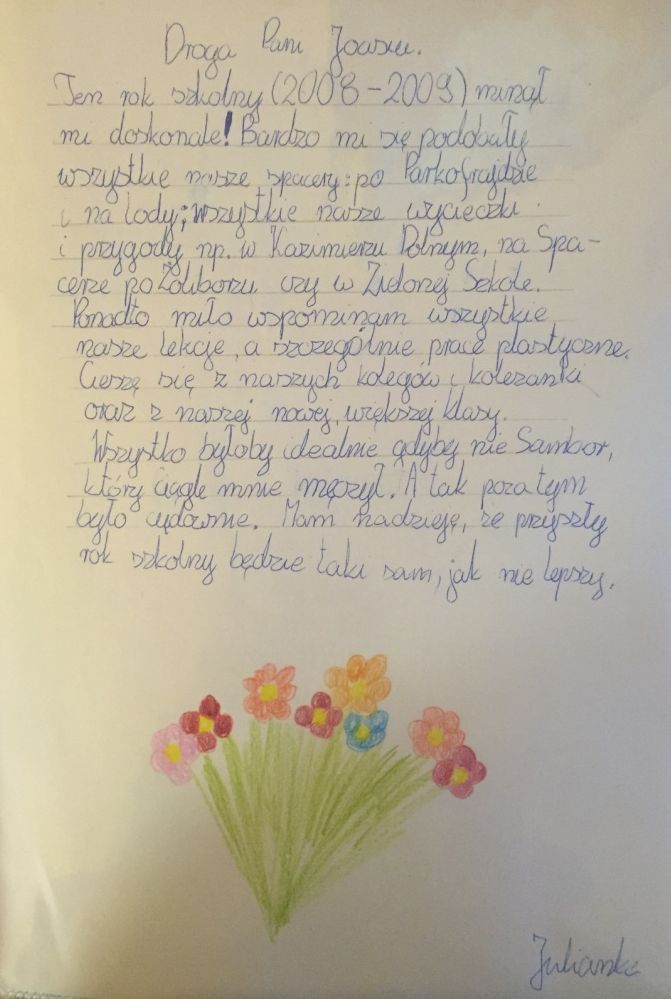 Droga Pani Joasiu.
Ten rok szkolny (2008-2009) minął
mi doskonale! Bardzo mi się podobały
wszystkie nasze spacery: po Parkofrajdzie
i na lody; wszystkie nasze wycieczki
i przygody np. w Kazimierzu Dolnym, na Spa-
cerze po Żoliborzu czy w Zielonej Szkole.
Ponadto miło wspominam wszystkie
nasze lekcje, a szczególnie prace plastyczne.
Cieszę się z naszych kolegów i koleżanki
oraz z naszej nowej, większej klasy.
Wszystko byłoby idealnie gdyby nie Sambor,
który ciągle mnie męczył. A tak poza tym
było cudownie. Mam nadzieję, że przyszły
rok szkolny będzie taki sam, jak nie lepszy.
Julianka